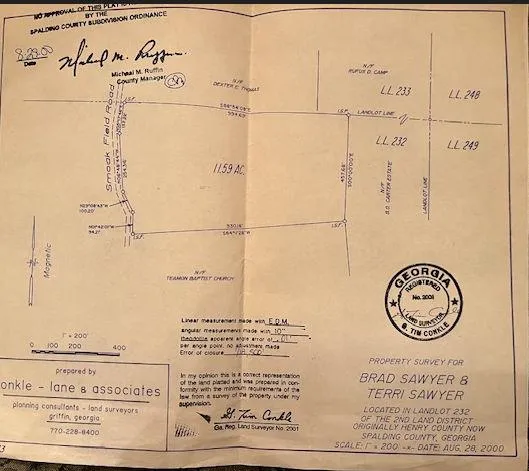 NO APPROVAL OF THIS PLAT IS
BY THE
SPALDING COUNTY SUBDIVISION ORDINANCE
8-29-00
Date
Michael M. Ruffin
Michael M. Ruffin
County Manager
N/F
DEXTER E. THOMAS
N/F
RUFUS D. CAMP
L.L. 233
L.L. 248
I.S.F.
I.S.F.
LANDLOT LINE
L.L. 232
L.L. 249
Smoak Field Road
11.59 AC.
N/F
B.D. CARTER ESTATE
LANDLOT LINE
100.20'
94.21'
I.S.F.
I.S.F.
N/F
TEAMON BAPTIST CHURCH
Magnetic
1" = 200'
0 100 200 400
Linear measurement made with E.D.M.
angular measurement made with 10"
theodolite apparent angle error of .01"
per angle point. no adjustment made
Error of closure
In my opinion this is a correct representation
of the land platted and was prepared in con-
formity with the minimum requirements of the
law from a survey of the property under my
supervision.
G. Tim Conkle
Ga. Reg. Land Surveyor No. 2001
prepared by
onkle - lane & associates
planning consultants - land surveyors
griffin, georgia
770-228-8400
GEORGIA
REGISTERED
No. 2001
LAND SURVEYOR
G. TIM CONKLE
PROPERTY SURVEY FOR
BRAD SAWYER &
TERRI SAWYER
LOCATED IN LANDLOT 232
OF THE 2ND LAND DISTRICT
ORIGINALLY HENRY COUNTY NOW
SPALDING COUNTY, GEORGIA
SCALE: 1" = 200' -x- DATE: AUG. 28, 2000